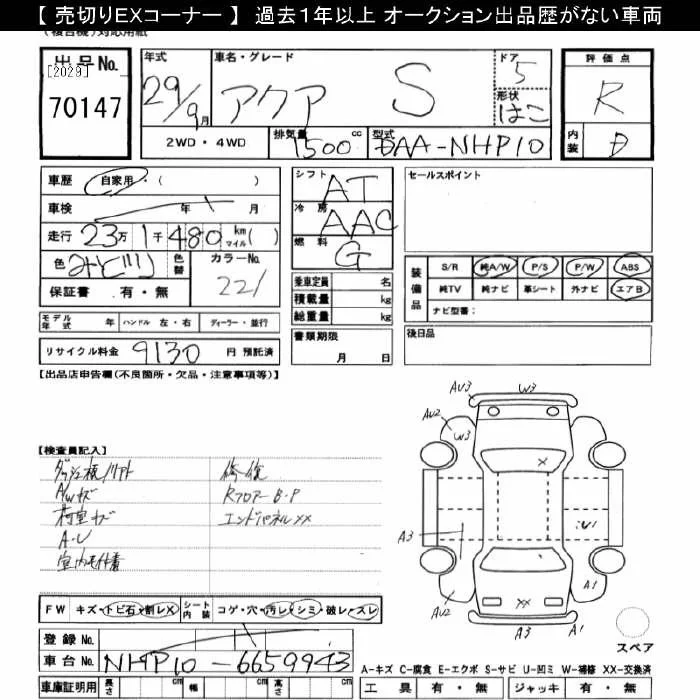 【 売切りEXコーナー 】 過去1年以上 オークション出品歴がない車両
出品No.
[2029]
70147
年式
29/9月
車名・グレード
アクア S
ドア
5
形状
はこ
2WD・4WD
排気量
1500cc
型式
DAA-NHP10
評価点
R
内装
D
車歴 自家用・( )
車検 年 月
走行 23万1千480 km マイル( )
色 みどり 色替
カラーNo. 221
保証書 有・無
シフト AT
冷房 AAC
燃料 G
乗車定員 名
積載量 kg
総重量 kg
セールスポイント
装備品
S/R 純A/W P/S P/W ABS
純TV 純ナビ 革シート 外ナビ エアB
ナビ型番:
モデル年式 年 ハンドル 左・右 ディーラー・並行
リサイクル料金 9130 円 預託済
書類期限
月 日
後日品
【出品店申告欄(不良箇所・欠品・注意事項等)】
【検査員記入】
A/Wキズ
荷室キズ
A・U
修復
RフロアーB・P
エンドパネルXX
AU3
W3
AU2
W3
X
A3
U1
AU2
A1
XX
A3
A1
スペア
FW キズ・トビ石・割レX シート内装 コゲ・穴・汚レ・シミ・破レ・スレ
登録No.
車台No. NHP10-6659943
車庫証明用 長さ cm 幅 cm 高さ cm
A-キズ C-腐食 E-エクボ S-サビ U-凹ミ W-補修 XX-交換済
工具 有・無 ジャッキ 有・無